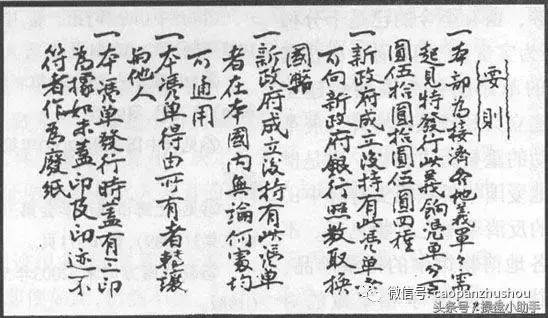 要則
一本部為接濟各地義軍軍需
起見特發行此義餉憑單分百
圓伍拾圓拾圓伍圓四種
一新政府成立後持有此憑單
可向新政府銀行照數收換
國幣
一新政府成立後持有此憑單
者在本國內無論何處均
可通用
一本憑單得由所有者轉讓
與他人
一本憑單發行時蓋有三印
為據如未蓋印及印迹不
符者作為廢紙
微信号: caopanzhushou
头条号 / 操盘小助手